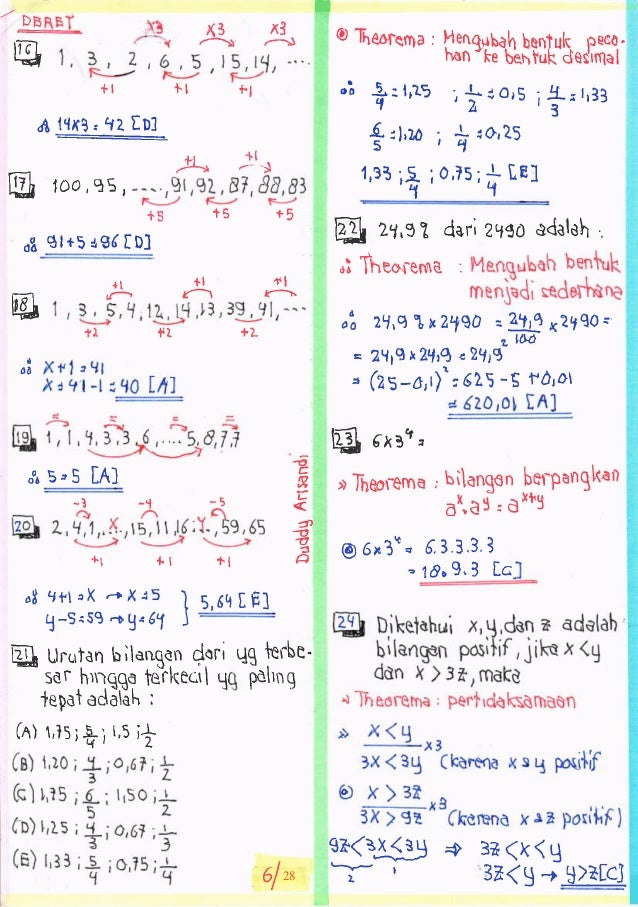 DERET
x3 x3 x3
16 1, 3, 2, 6, 5, 15, 14, ....
+1 +1 +1
∴ 14x3 = 42 [D]
+1 +1
17 100, 95, ...., 91, 92, 87, 88, 83
+5 +5 +5
∴ 91+5 = 96 [D]
+1 +1 +1
18 1, 3, 5, 4, 12, 14, 13, 39, 41, ...
+2 +2 +2
∴ x+1 = 41
x = 41-1 = 40 [A]
= = = =
19 1, 1, 4, 3, 3, 6, .... 5, 8, 7, 7
∴ 5 = 5 [A]
-3 -4 -5
20 2, 4, 1, .X., 15, 11, 16, .Y., 59, 65
+1 +1 +1
∴ 4+1 = x → x = 5
y-5 = 59 → y = 64 } 5, 64 [E]
21 Urutan bilangan dari yg terbe-
sar hingga terkecil yg paling
tepat adalah :
(A) 1,75 ; 5/4 ; 1,5 ; 1/2
(B) 1,20 ; 4/3 ; 0,67 ; 1/2
(C) 1,75 ; 6/5 ; 1,50 ; 1/2
(D) 1,25 ; 4/3 ; 0,67 ; 1/3
(E) 1,33 ; 5/4 ; 0,75 ; 1/4
6/28
Duddy Arisandi
Theorema : Mengubah bentuk peca-
han ke bentuk desimal
∴ 5/4 = 1,25 ; 1/2 = 0,5 ; 4/3 = 1,33
6/5 = 1,20 ; 1/4 = 0,25
1,33 ; 5/4 ; 0,75 ; 1/4 [E]
22 24,9% dari 2490 adalah :
∴ Theorema : Mengubah bentuk
menjadi sederhana
∴ 24,9% x 2490 = 24,9/100 x 2490 =
= 24,9 x 24,9 = 24,9²
= (25-0,1)² = 625 - 5 + 0,01
= 620,01 [A]
23 6x3⁴ =
» Theorema : bilangan berpangkan
aˣ.aʸ = aˣ⁺ʸ
6x3⁴ = 6.3.3.3.3
= 18.9.3 [C]
24 Diketahui x, y, dan z adalah
bilangan positif, jika x < y
dan x > 3z, maka
Theorema : pertidaksamaan
» x < y
x3
3x < 3y (karena x & y positif
x > 3z
x3
3x > 9z (karena x & z positif)
9z < 3x < 3y ⇒ 3z < x < y
2 1 3z < y → y > z [C]